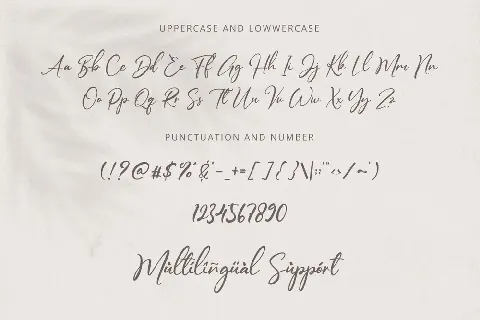 UPPERCASE AND LOWWERCASE
Aa Bb Cc Dd Ee Ff Gg Hh Ii Jj Kk Ll Mm Nn
Oo Pp Qq Rr Ss Tt Uu Vv Ww Xx Yy Zz
PUNCTUATION AND NUMBER
(!?@#$%^&*-_+=[]{}\|:;'"<>/~`)
1234567890
Mùltilîñgüàl Sùppórt